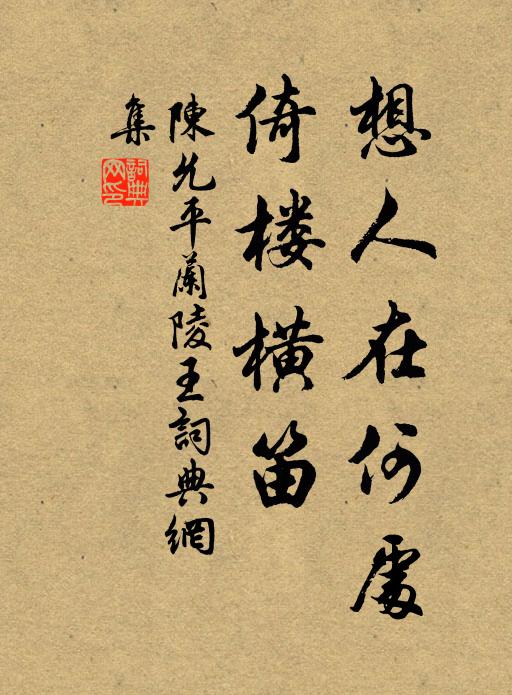 想人在何處
倚楼横笛
陳允平蘭陵王詞典網
集
詞典
网印